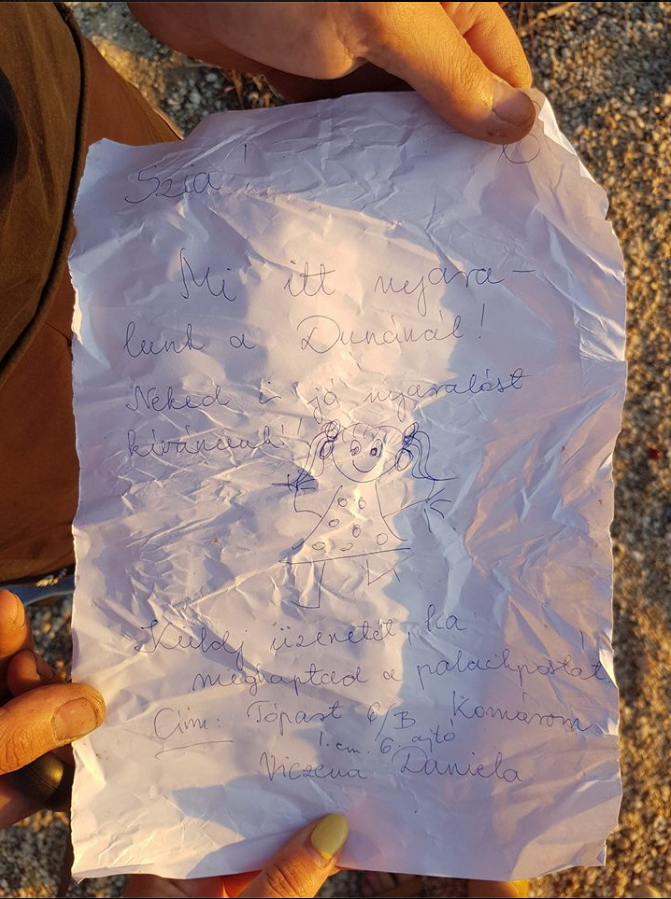 Szia!
Mi itt nyara-
lunk a Dunánál!
Neked is jó nyaralást
kívánunk!!
Küldj üzenetet, ha
megkaptad a palackpostát!
Cím: Tópart 6/B Komárom
1. em. 6. ajtó
Viczena Daniela